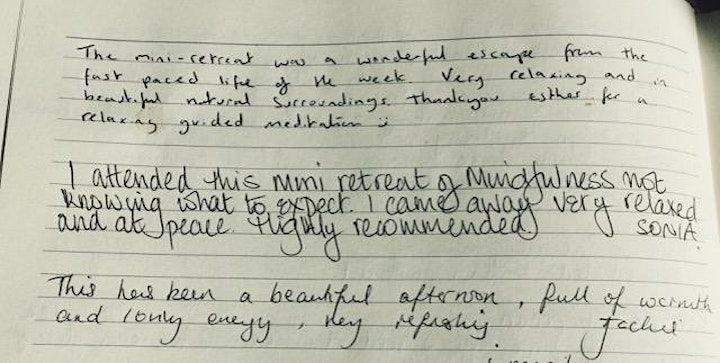 The mini-retreat was a wonderful escape from the
fast paced life of the week. Very relaxing and in
beautiful natural surroundings. Thankyou Esther for a
relaxing guided meditation :)
I attended this mini retreat of Mindfulness not
knowing what to expect. I came away very relaxed
and at peace. Highly recommended. SONIA.
This has been a beautiful afternoon, full of warmth
and lovly energy, very refreshing. Jackie